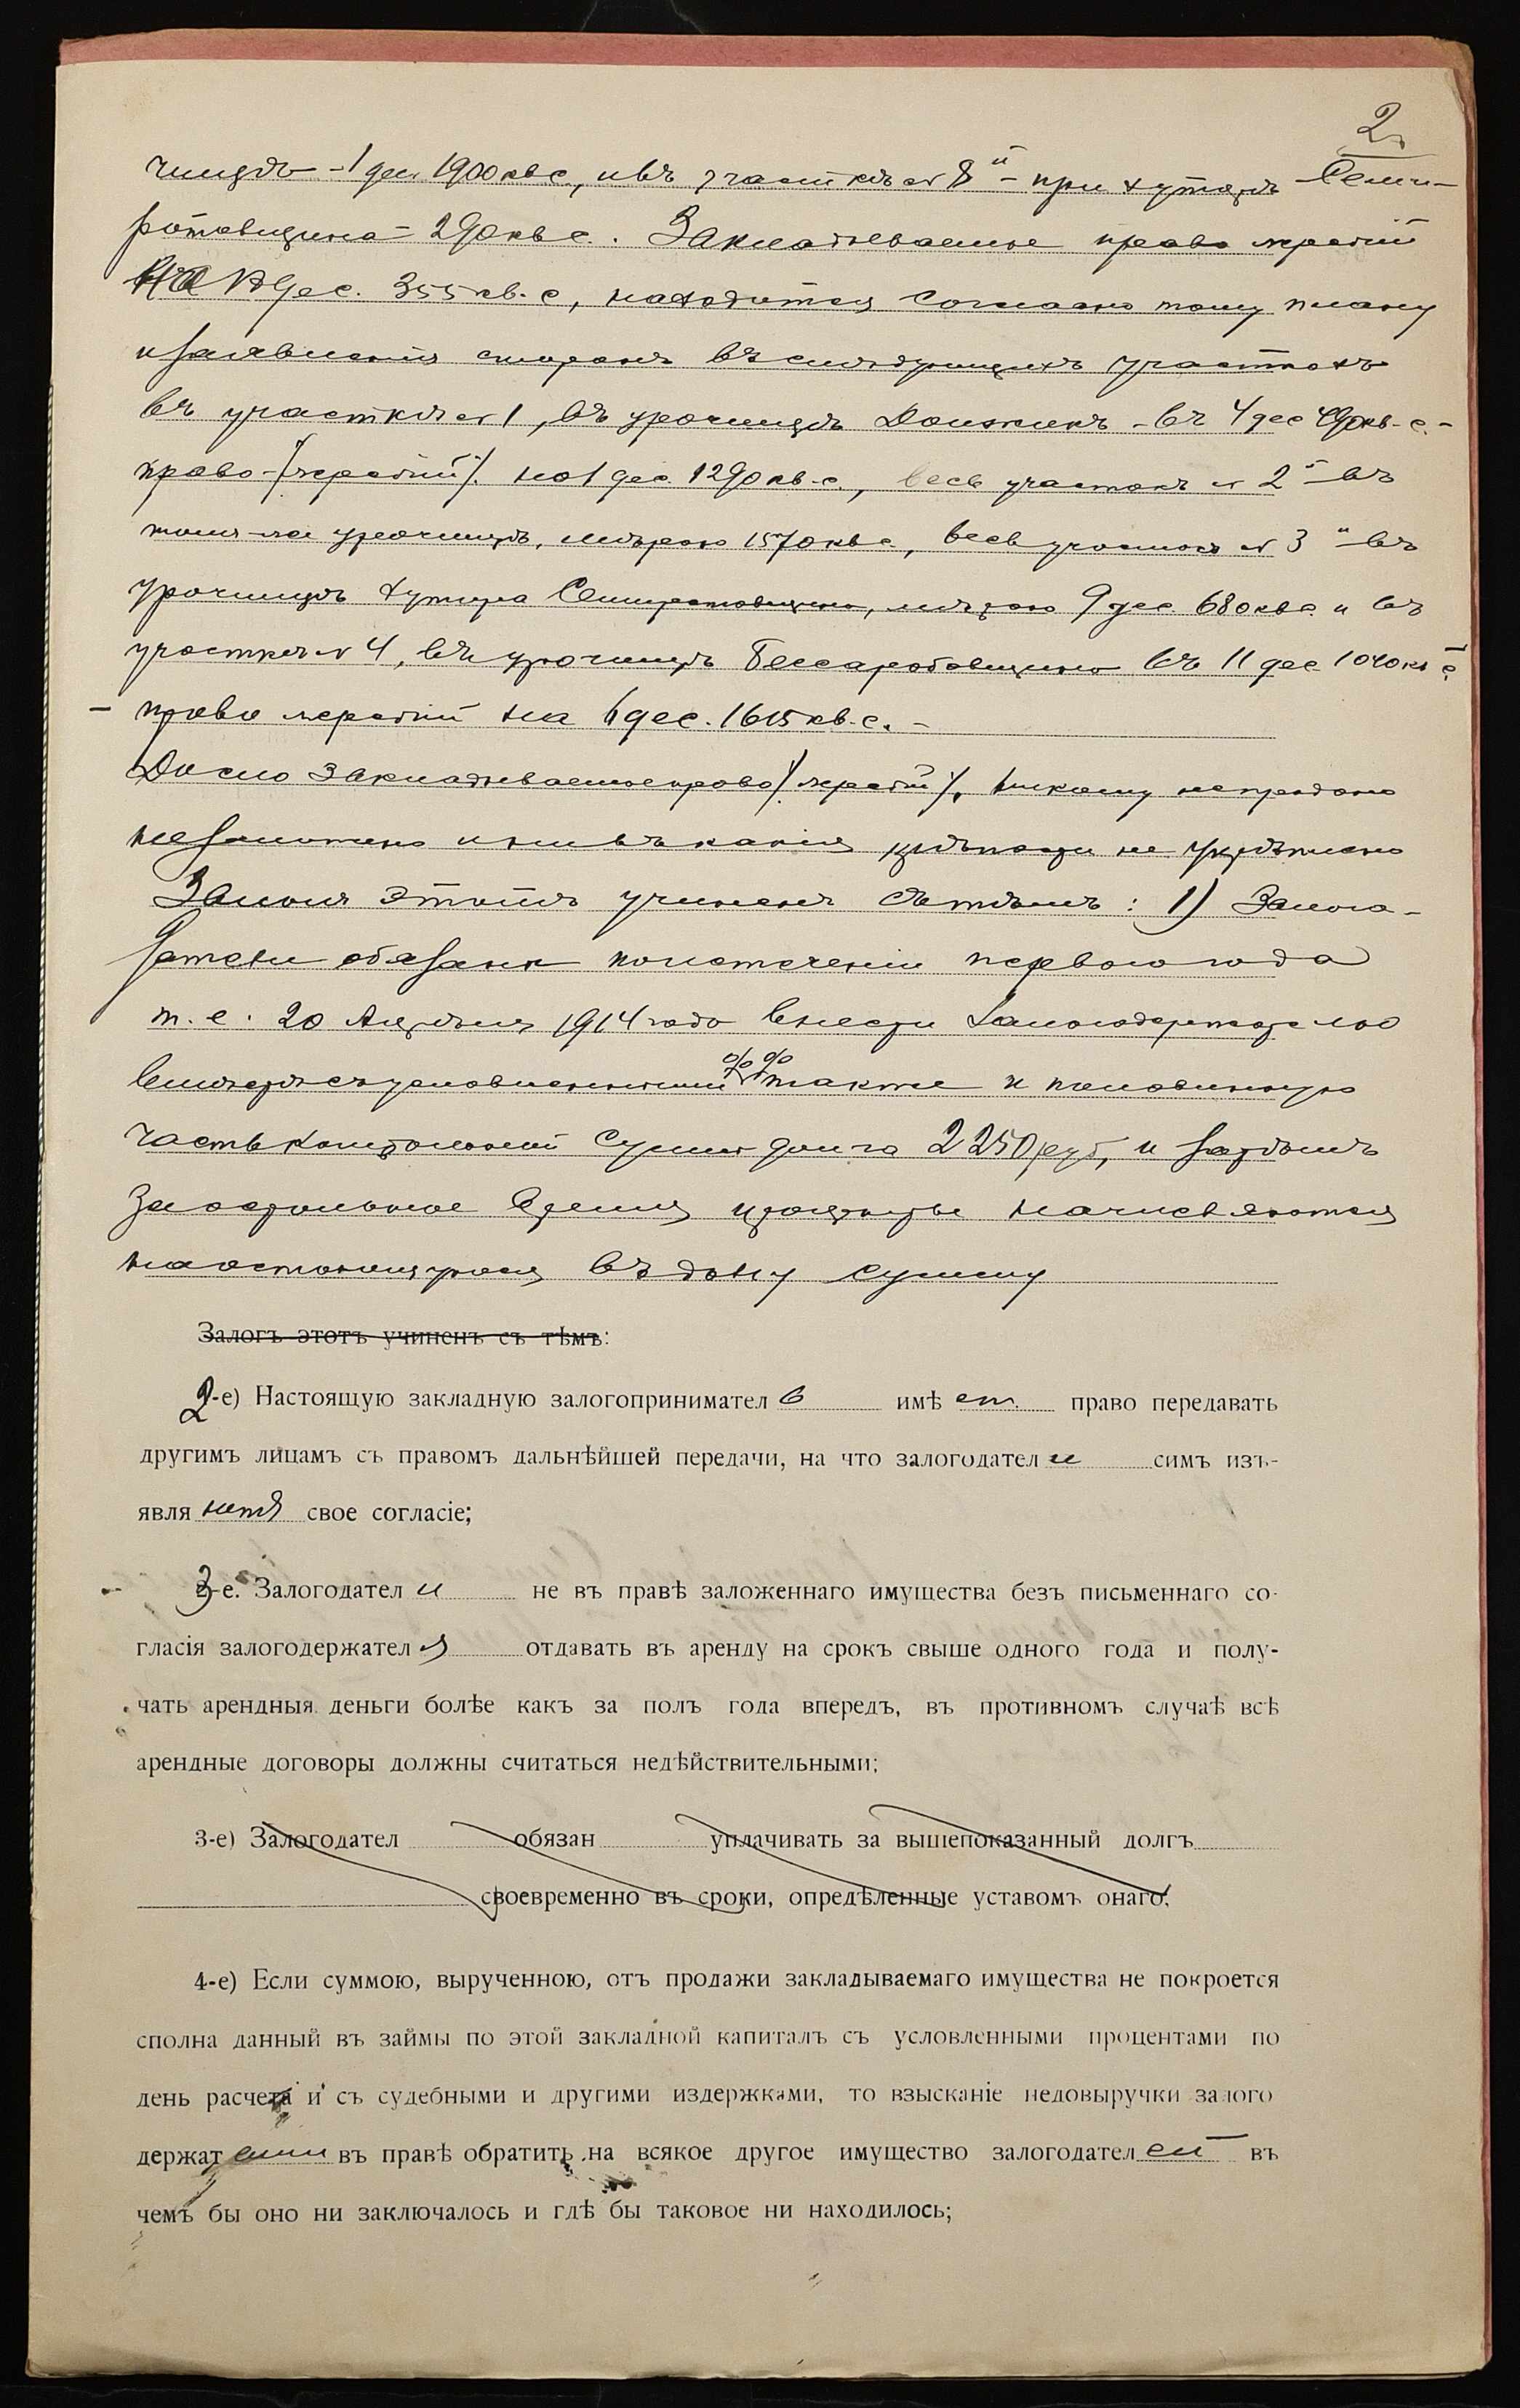 2
чищѣ - 1 дес. 1900 кв. с., и въ участкѣ № 8" - при хуторѣ Семи-
ротовщина - 290 кв. с. Закладываемое право
дес. 355 кв. с., находится согласно тому плану
и заявленія сторонъ въ слѣдующихъ участкахъ
въ участкѣ № 1, въ урочищѣ Должикъ - въ 4 дес. 490 кв. с. -
право на 1 дес. 1290 кв. с., весь участокъ № 2" - въ
томъ-же урочищѣ, мѣрою 1570 кв. с., весь участокъ № 3" - въ
урочищѣ хутора Семиротовщина, мѣрою 9 дес. 680 кв. с. и въ
участкѣ № 4, въ урочищѣ Бессарабовщина въ 11 дес. 1040 кв. с.
- право на 6 дес. 1615 кв. с. -
закладываемое право никому не продано
не заложено и ни въ какія крѣпости не укрѣплено
Залогъ этотъ учиненъ съ тѣмъ: 1) Залого-
датели обязаны по истеченіи перваго года
т. е. 20 Апрѣля 1914 года внести залогодержателю
вмѣстѣ съ условленными %% также и половинную
часть капитальной суммы долга 2250 руб., и затѣмъ
за остальное время проценты начисляются
на остающуюся въ долгу сумму
Залогъ этотъ учиненъ съ тѣмъ:
2-е) Настоящую закладную залогопринимател ь имѣ ет. право передавать
другимъ лицамъ съ правомъ дальнѣйшей передачи, на что залогодател и симъ изъ-
явля ютъ свое согласіе;
3-е. Залогодател и не въ правѣ заложеннаго имущества безъ письменнаго со-
гласія залогодержател я отдавать въ аренду на срокъ свыше одного года и полу-
чать арендныя деньги болѣе какъ за полъ года впередъ, въ противномъ случаѣ всѣ
арендные договоры должны считаться недѣйствительными;
3-е) Залогодател обязан уплачивать за вышепоказанный долгъ
своевременно въ сроки, опредѣленные уставомъ онаго;
4-е) Если суммою, вырученною, отъ продажи закладываемаго имущества не покроется
сполна данный въ займы по этой закладной капиталъ съ условленными процентами по
день расчета и съ судебными и другими издержками, то взысканіе недовыручки залого
держат въ правѣ обратить на всякое другое имущество залогодател ей въ
чемъ бы оно ни заключалось и гдѣ бы таковое ни находилось;